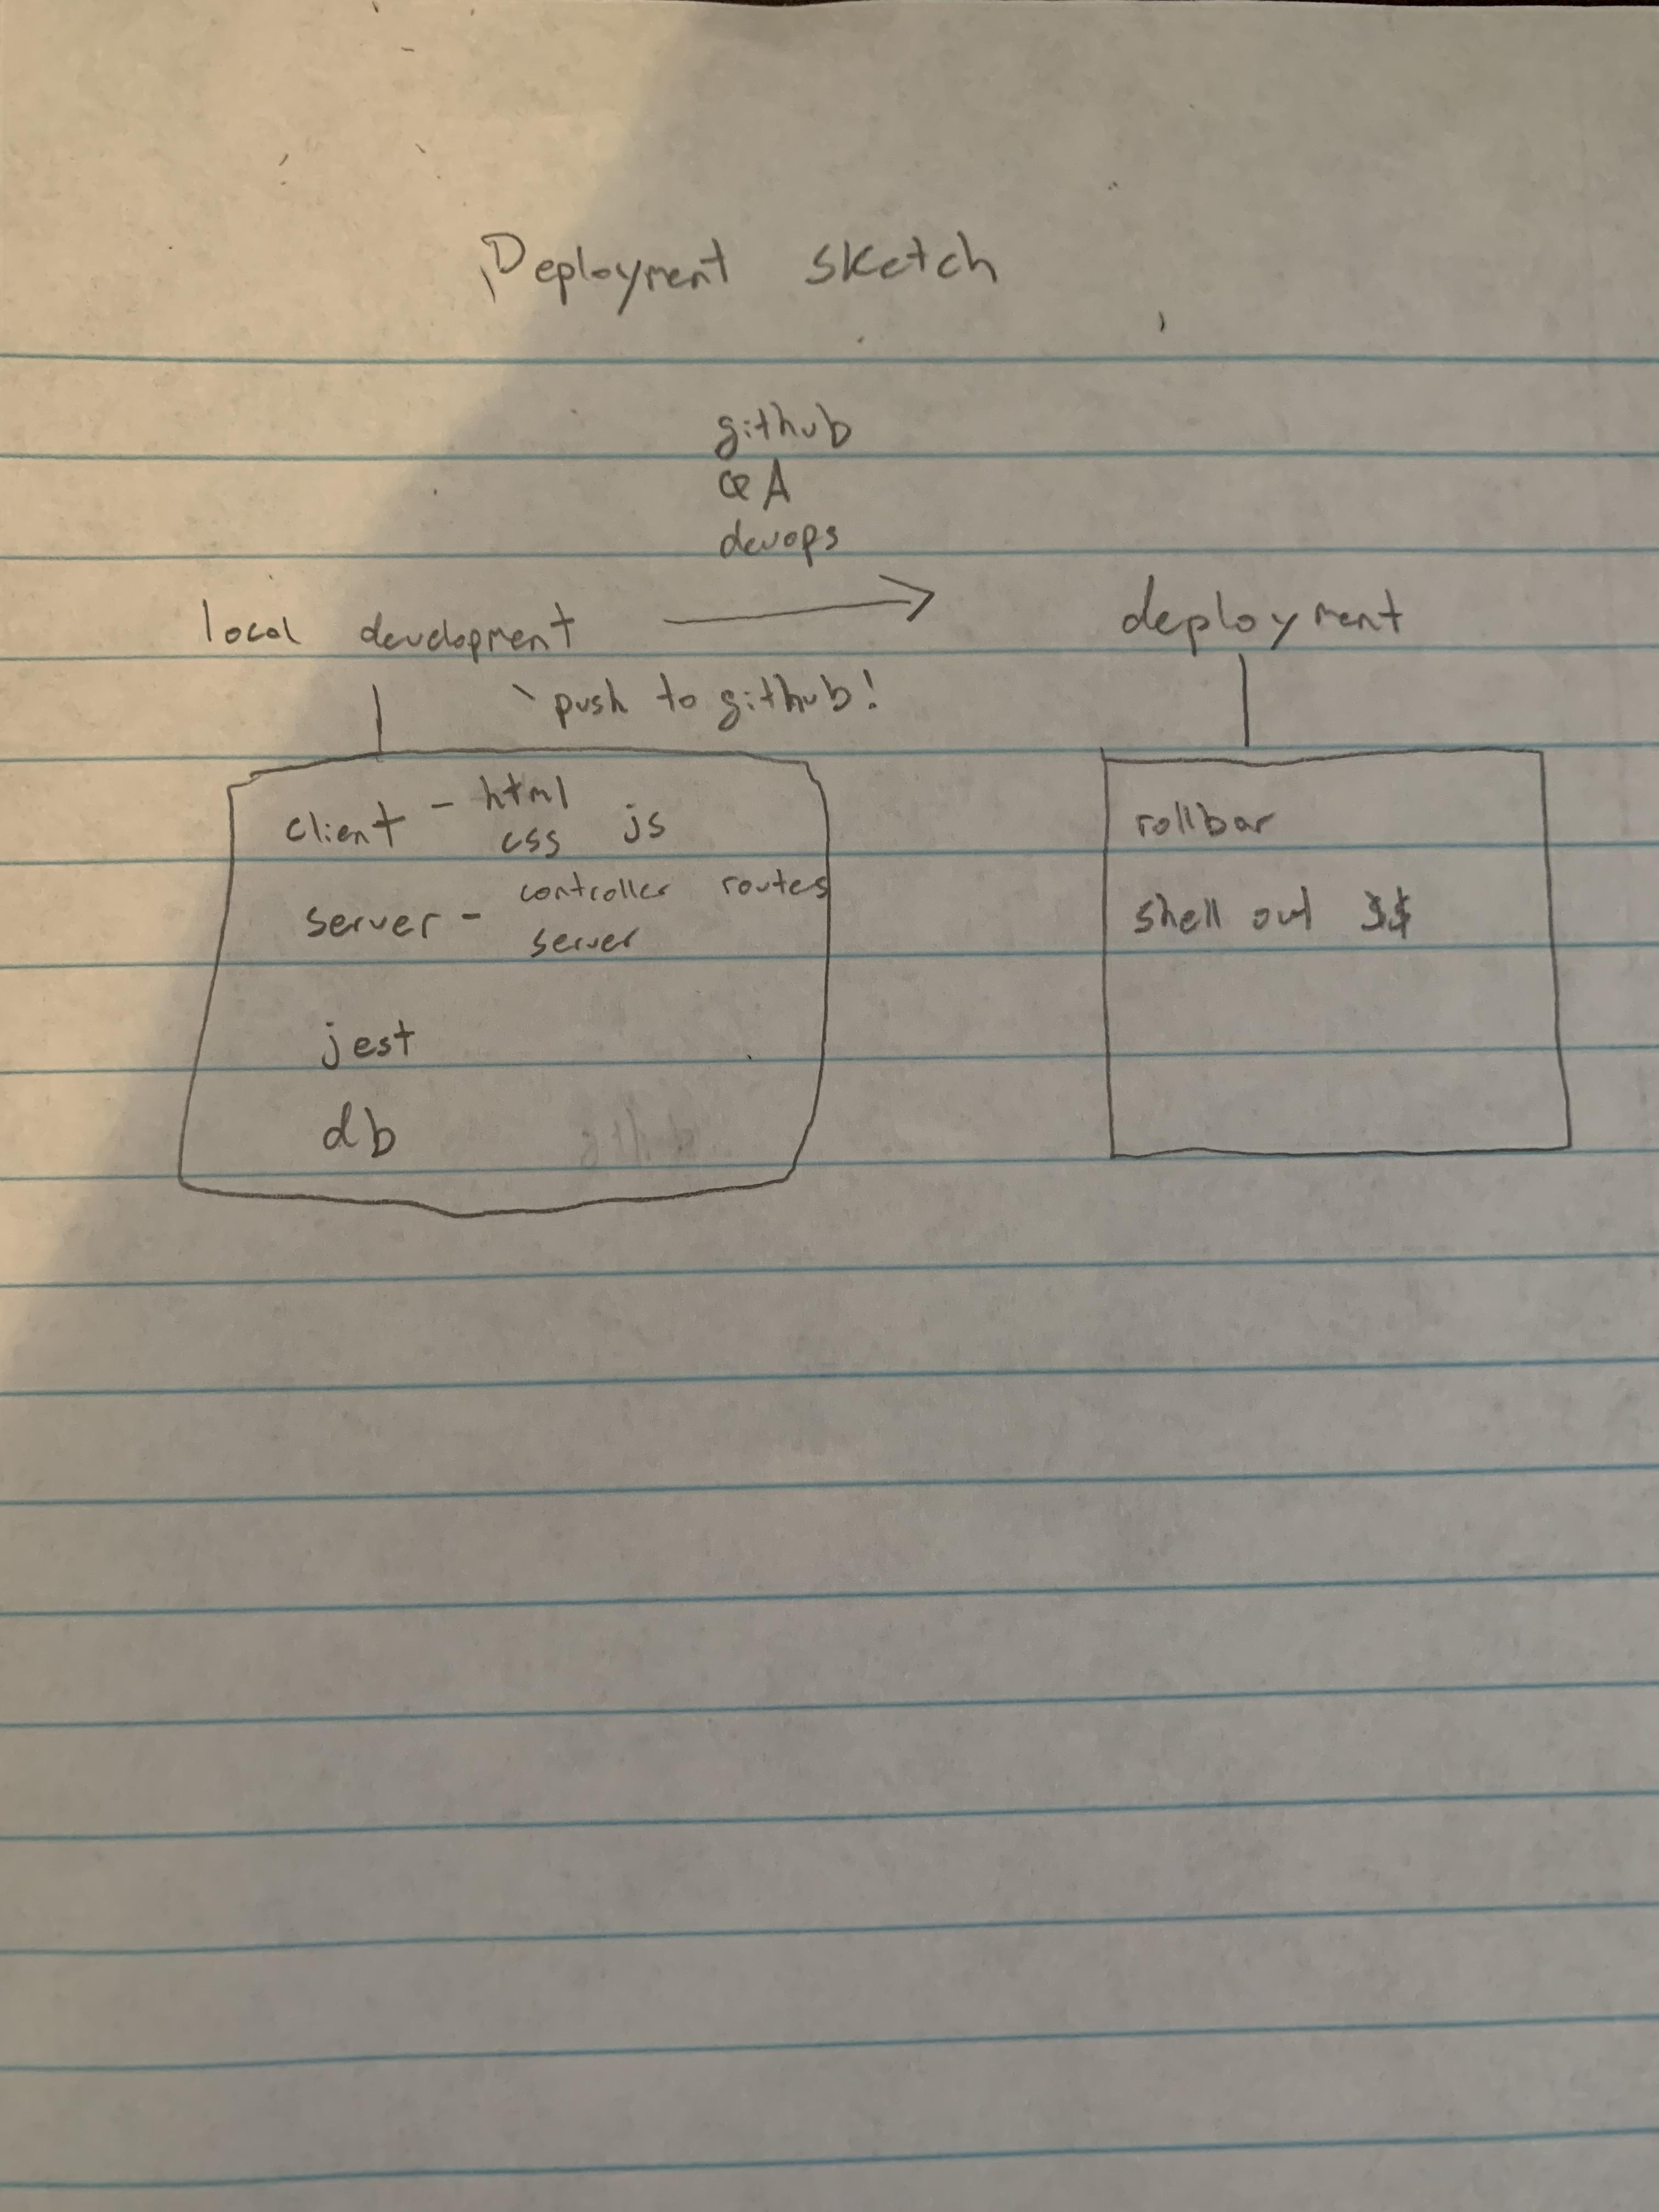 Deployment sketch
github
QA
devops
local development
deployment
push to github!
client - html
css js
server - controller routes
server
jest
db
rollbar
shell out $$